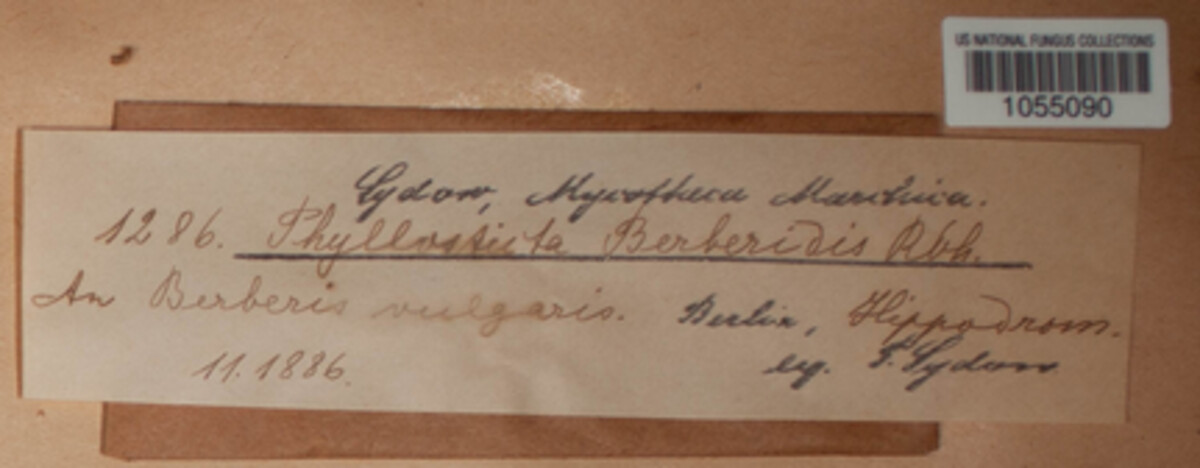 US NATIONAL FUNGUS COLLECTIONS
1055090
Sydow, Mycotheca Marchica.
1286. Phyllosticta Berberidis Rbh.
An Berberis vulgaris. Berlin, Hippodrom.
11.1886. leg. P. Sydow